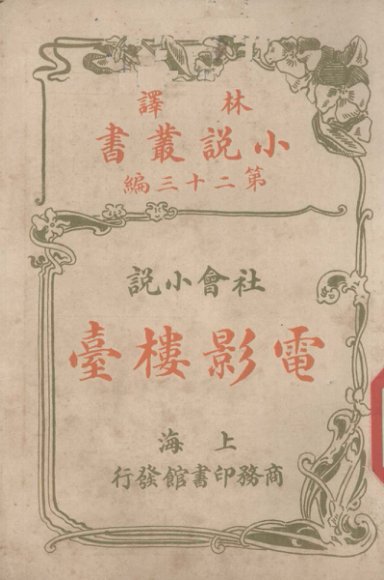 林譯
小説叢書
第二十三編
社會小説
電影樓臺
上海
商務印書館發行